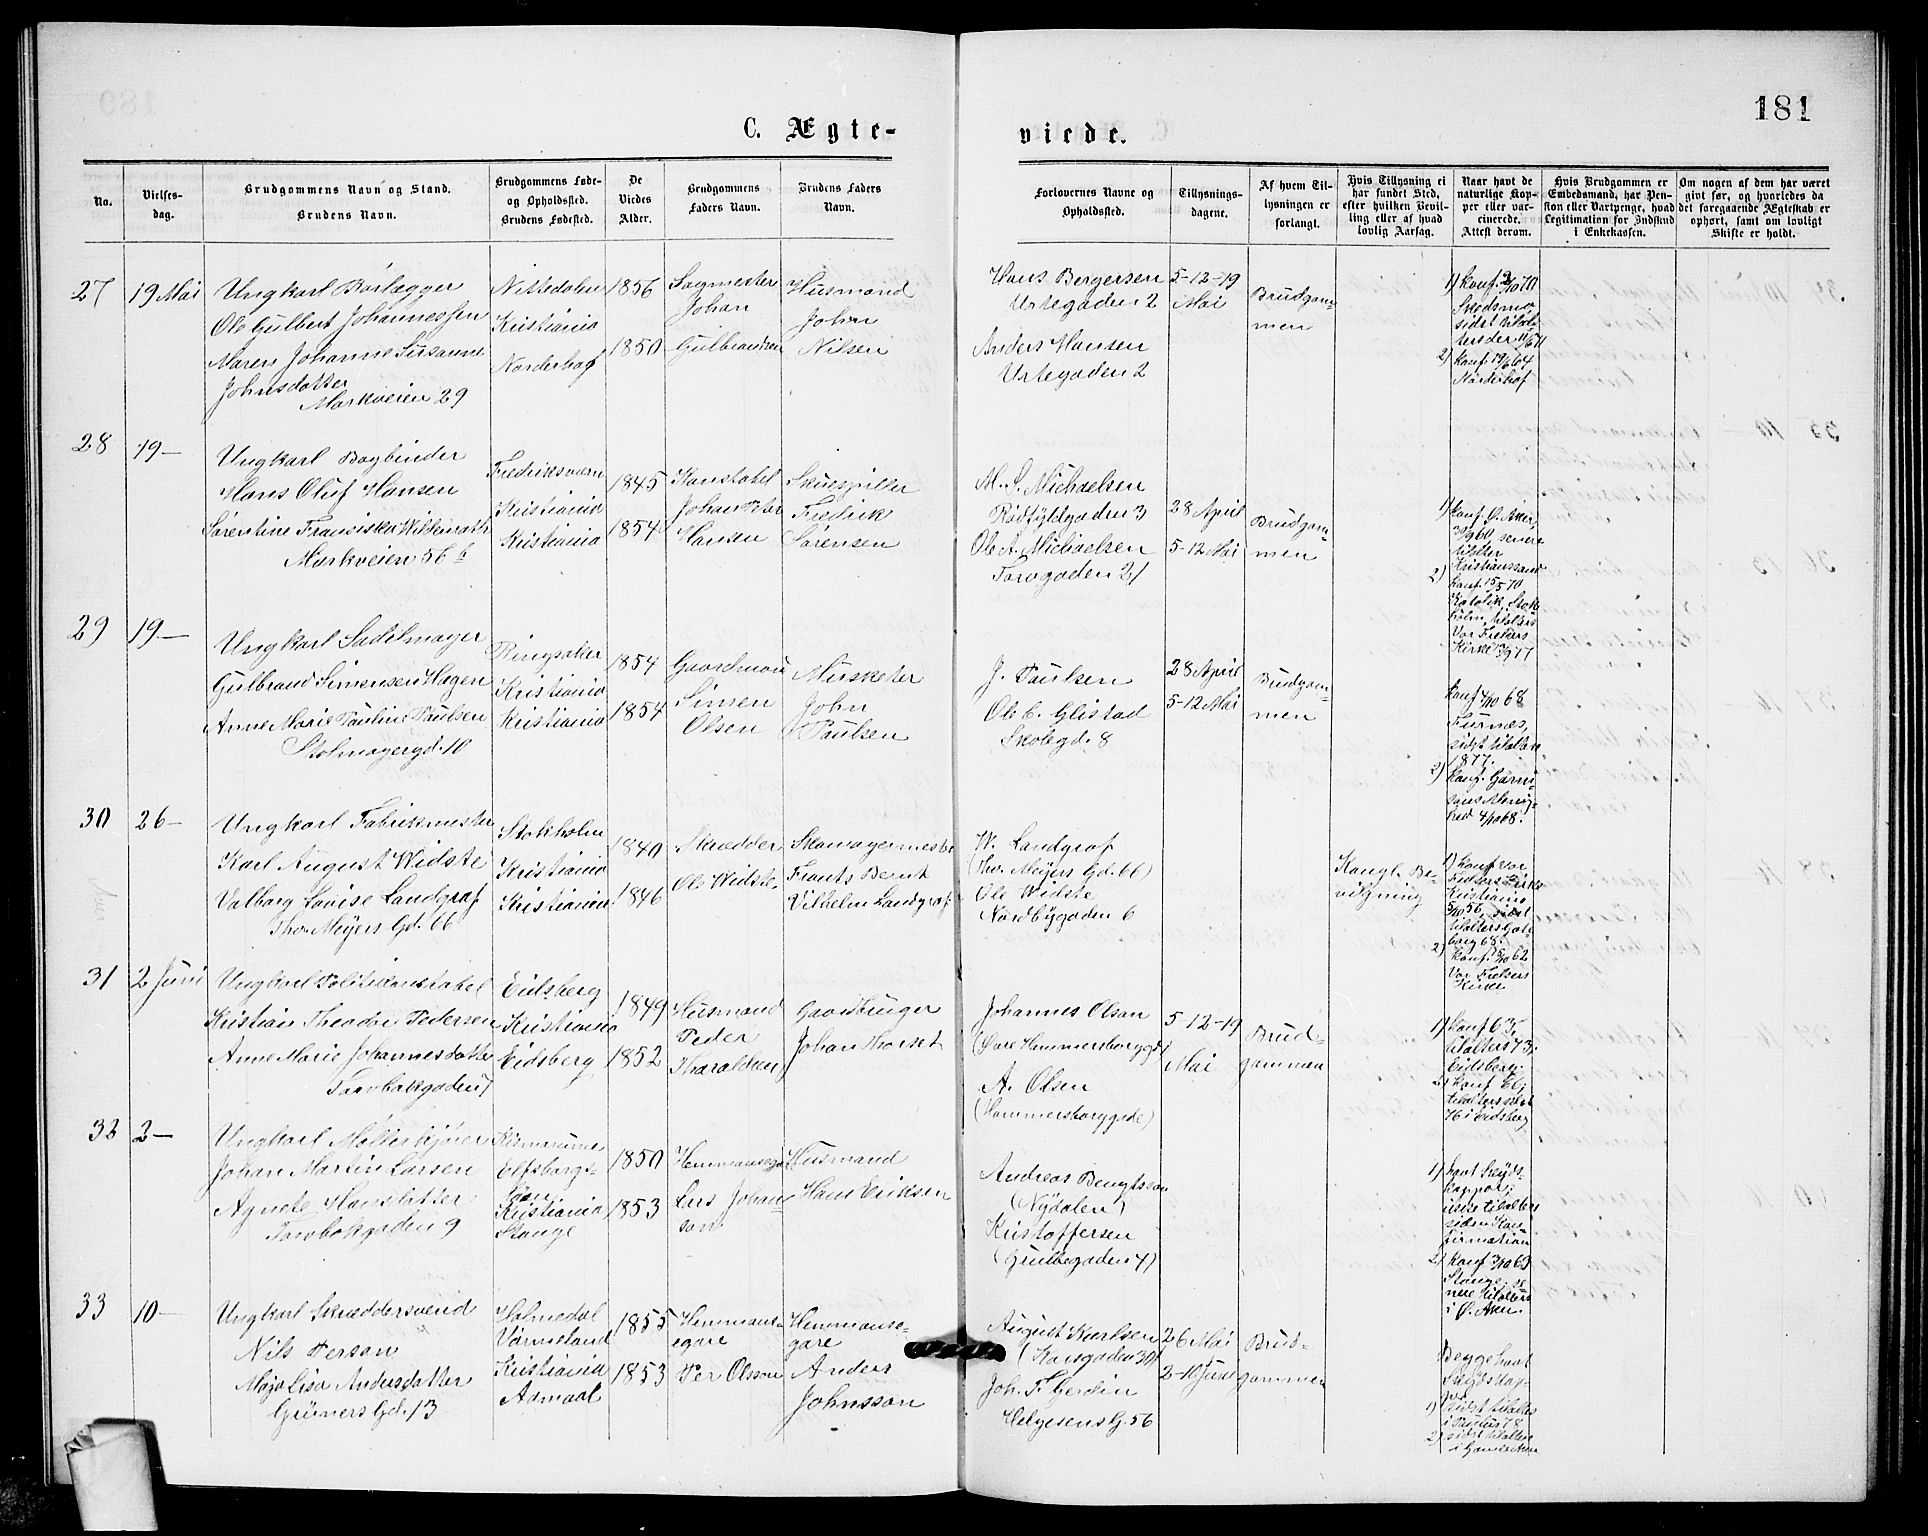 181
C. Ægte-
viede.
No.
Vielses-
dag.
Brudgommens Navn og Stand.
Brudens Navn.
Brudgommens Føde-
og Opholdssted.
Brudens Fødested.
De
Viedes
Alder.
Brudgommens
Faders Navn.
Brudens Faders
Navn.
Forlovernes Navne og
Opholdssted.
Tillysnings-
dagene.
Af hvem Til-
lysningen er
forlangt.
Hvis Tillysning ei
har fundet Sted,
efter hvilken Bevil-
ling eller af hvad
lovlig Aarsag.
Naar havt de
naturlige Kop-
per eller vac-
cinerede.
Attest derom.
Hvis Brudgommen er
Embedsmand, har Pen-
sion eller Vartpenge, hvad
Legitimation for Indskud
i Enkekassen.
Om nogen af dem har været
gift før, og hvorledes da
det foregaaende Ægteskab er
ophørt, samt om lovligt
Skifte er holdt.
27
19 Mai
Ungkarl Børlægger
Ole Gulbert Johannessen
Maren Johanne Susanne
Johnsdatter
Markveien 29
Nittedalen
Kristiania
Norderhof
1856
1850
Sagmester
Johan
Gulbrandsen
Husmand
John
Nilsen
Hans Bergersen
Urtegaden 2
Anders Hansen
Urtegaden 2
5-12-19
Mai
Brudgom-
men
1) Konf.
Skedsmo,
sidst tilal-
ters der
2) Konf. 19/6 64
Norderhof
28
19 —
Ungkarl Bogbinder
Hans Oluf Hansen
Sørentine Franciska Wildenrath
Markveien 56 b
Fredriksværn
Kristiania
Kristiania
1845
1854
Konstabel
Johan Peter
Hansen
Skuespiller
Fredrik
Sørensen
M. S. Michaelsen
Rødfyldgaden 3
Ole A. Michaelsen
Torvgaden 21
28 April
5-12 Mai
Brudgom-
men
1) Konf. Ø. Aker,
30/9 60, senere
tilalter
Kristianssand
2) Konf. 15/5 70
Katolik, Stok-
holm, tilalters
Vor Frelsers
Kirke
29
19 —
Ungkarl Sadelmager
Gulbrand Simensen Hagen
Anne Marie Pauline Paulsen
Stolmagergd. 10
Ringsaker
Kristiania
Kristiania
1854
1854
Gaardmand
Simen
Olsen
Musketer
John
Paulsen
J. Paulsen
Ole C. Glistad
Skolegd. 8
28 April
5-12 Mai
Brudgom-
men
Konf. 4/10 68
Furnes,
sidst tilalters
1877.
2) Konf. Garni-
sons Menig-
hed 4/10 68.
30
26 —
Ungkarl Fabrikmester
Karl August Widste
Valborg Lovise Landgraf
Thv. Meyers Gd. 66
Stokholm
Kristiania
Kristiania
1840
1846
Skrædder
Ole Widste
Skomagermester
Frants Bernt
Vilhelm Landgraf
W. Landgraf
(Thv. Meyers Gd. 66)
Ole Widste
Nordbygaden 6
Kongl. Be-
vilgning
1) Konf. Vor
Frelsers Kirke
Kristiania
5/10 56, sidst
tilalters Got-
borg 68.
2) Konf. 62
Vor Frelsers
Kirke
31
2 Juni
Ungkarl Politikonstabel
Kristian Theodor Pedersen
Anne Marie Johannesdatter
Torvbakgaden 7
Eidsberg
Kristiania
Eidsberg
1849
1852
Husmand
Peder
Tharaldsen
Gaardbruger
Johan Thorset
Johannes Olsen
(Øvre Hammersborggd.)
A. Olsen
(Hammersborggade)
5-12-19
Mai
Brud-
gommen
1) Konf 63,
tilalters 73,
Eidsberg.
2) Konf.
tilalters sidst
76 i Eidsberg
32
2 —
Ungkarl Møllerkjører
Johan Martin Larsen
Agnete Hansdatter
Torvbakgaden 9
Elfsborgs-
län
Kristiania
Stange
1850
1853
Hemmansega
Lars Johan-
son
Husmand
Hans Eriksen
Andreas Bengtsson
(Nydalen)
Kristoffersen
(Grubbegaden 4)
1) havt Skyds-
kopper;
ikke tilalters
siden Kon-
firmation
2) Konf 3/10 69
Stange, se-
nere tilalters
i Ø. Aker.
33
10 —
Ungkarl Skræddersvend
Nils Person
Maja Lisa Andersdatter
Grüners Gd. 13
Holmedal
Värmeland
Kristiania
Aamaal
1855
1853
Hemmans-
egare
Per Olsson
Hemmanse-
gare
Anders
Johnsson
August Karlsen
(Korsgaden 30)
Joh. F. Gerdin
Helgesens G. 56
26 Mai
2-10 Juni
Brud-
gommen
Begge havt
Skydskop-
per
1) Sidst tilalters
i Petrus 78
2) sidst tilalters
i Gamle Aker